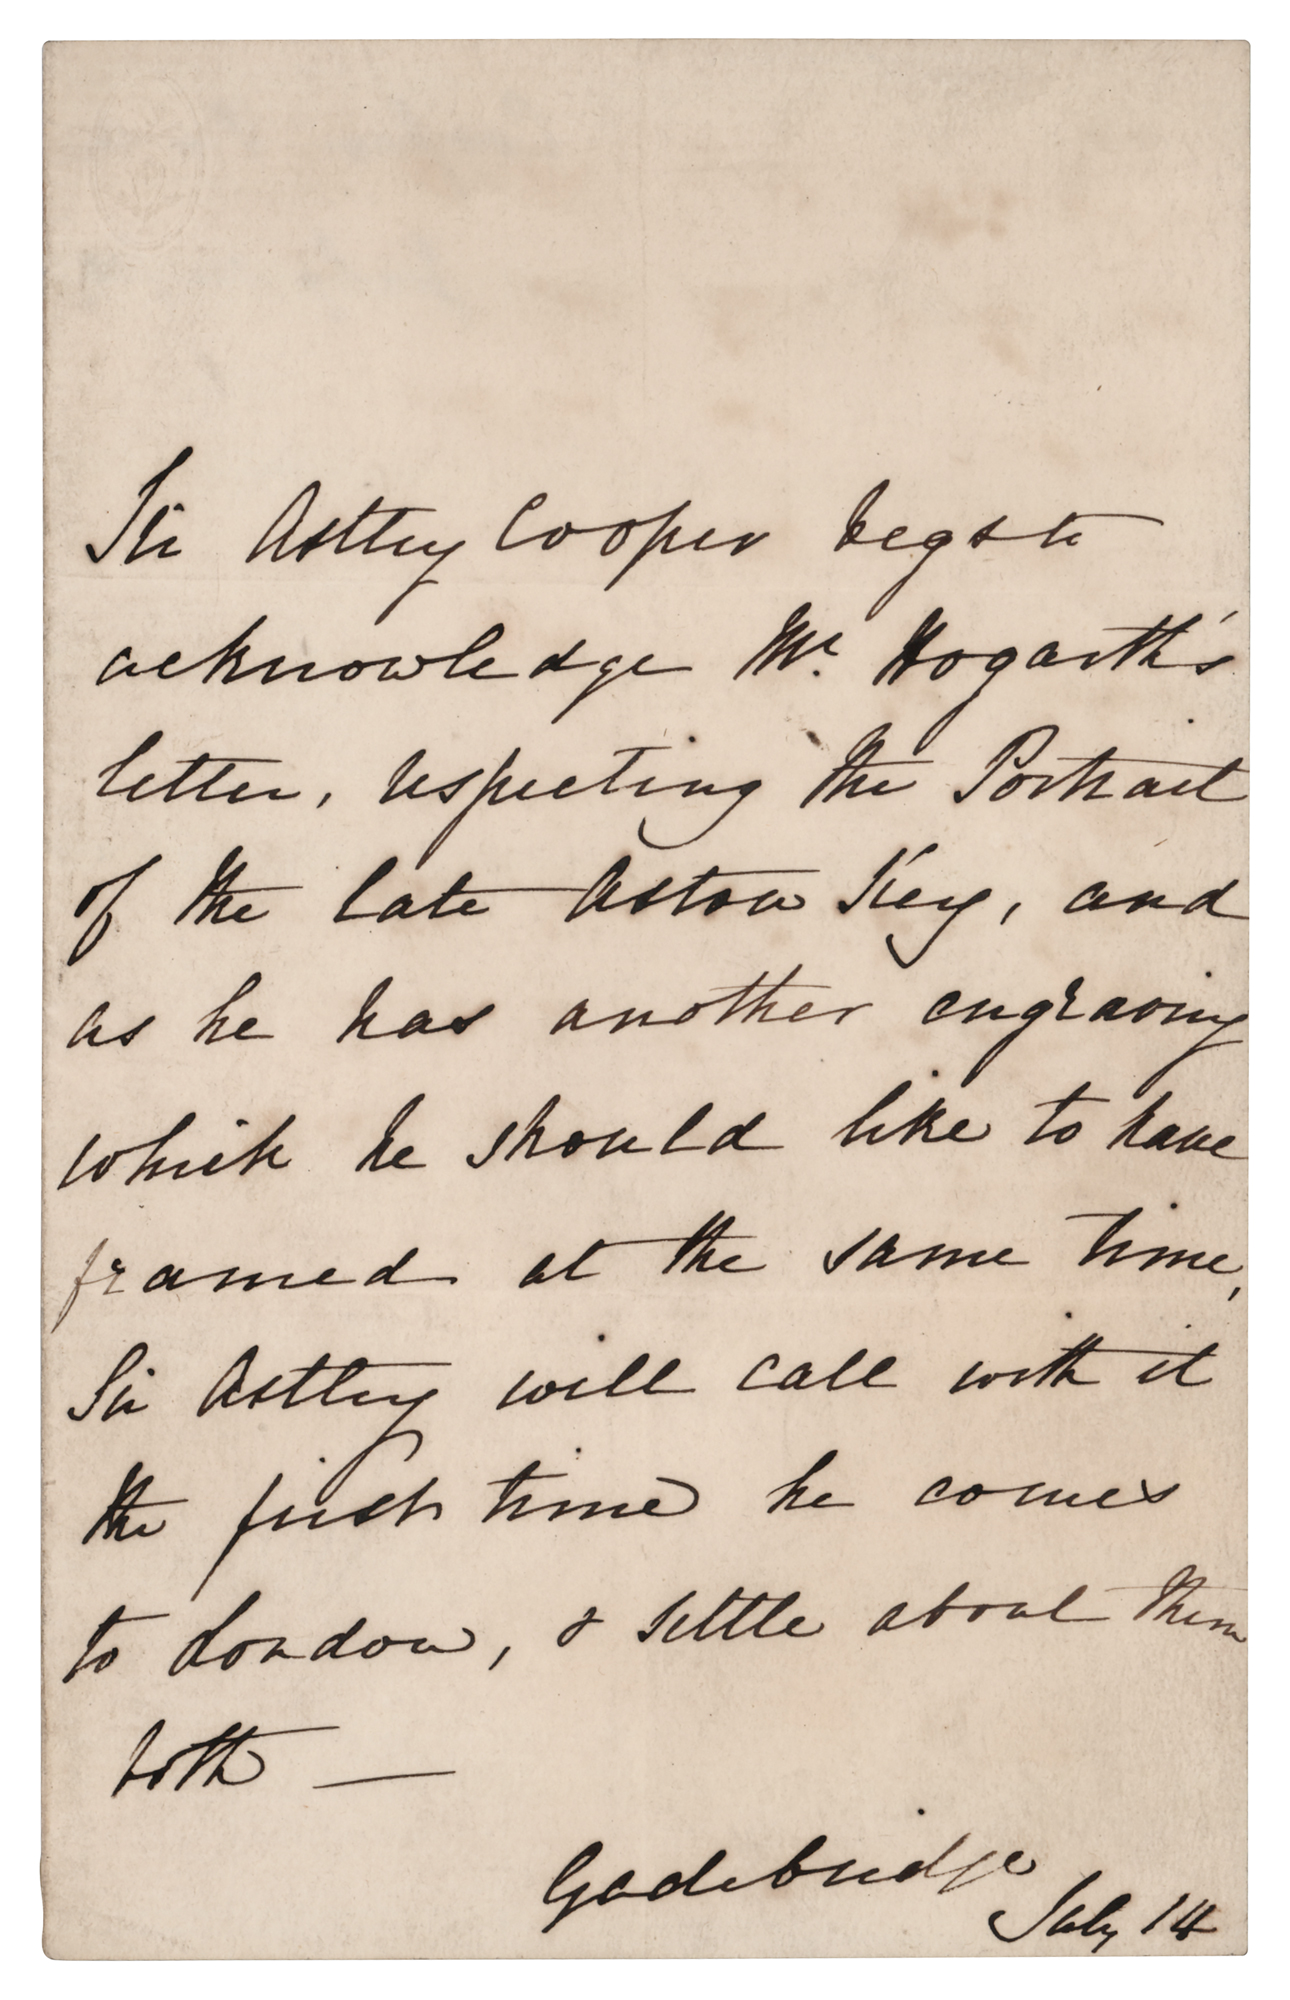 Sir Astley Cooper begs to
acknowledge Mr. Hogarth's
letter, respecting the Portrait
of the late Aston Key, and
as he has another engraving
which he should like to have
framed at the same time,
Sir Astley will call with it
the first time he comes
to London, & settle about them
both —
Gadebridge
July 14